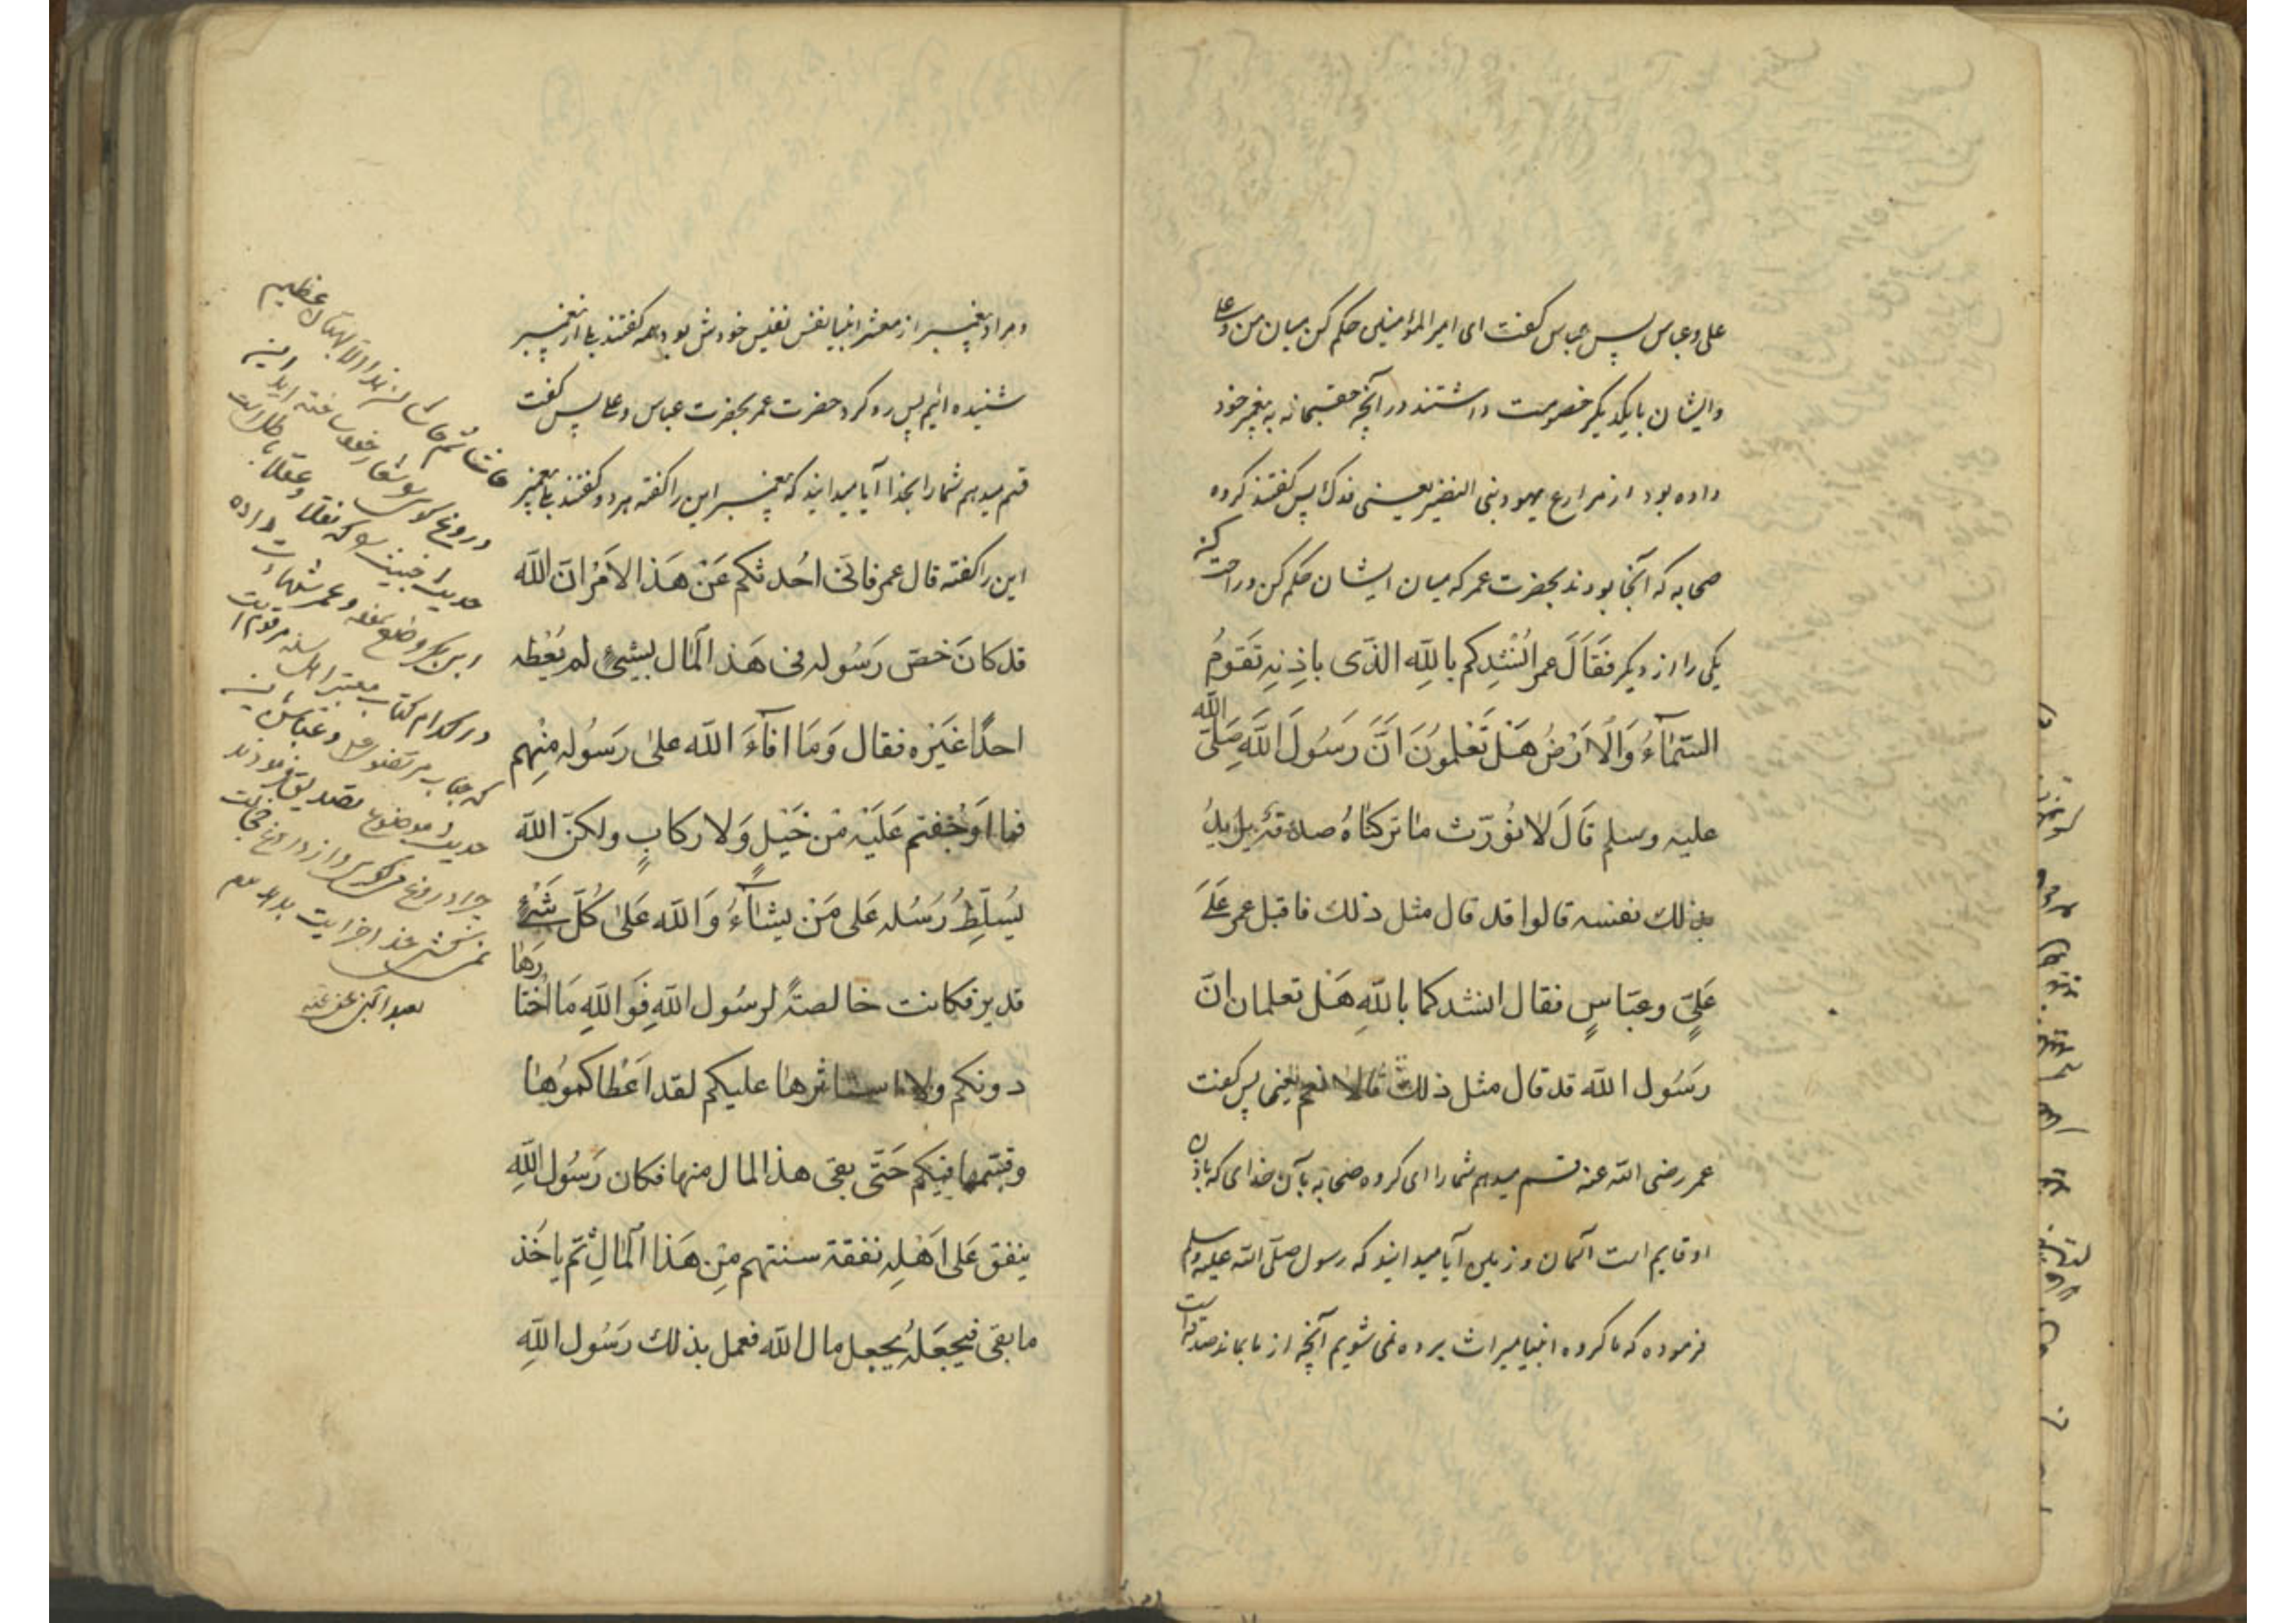 علی و عباس پس عباس گفت ای امیر المؤمنین حکم کن میان من و علی
و ایشان با یکدیگر خصومت داشتند در آنچه حقسبحانه به پیغمبر خود
داده بود از مزارع یهود بنی النضیر یعنی فدک پس گفتند گروه
صحابه که آنجا بودند بحضرت عمر که میان ایشان حکم کن و راحت کن
یکی را از دیگر فَقَالَ عمر اَنْشِدکم بالله الذّی باِذنِه تَقَومُ
السّمآءُ وَالْاَرْضُ هَلْ تَعْلمونَ انَّ رَسُولَ اللهِ صَلَّی الله
علیه وسلم قَالَ لَا نُوَرّث مَا تَرکنَاهُ صدقة یرید
بذلك نفسه قالوا قد قال مثل ذلك فاقبل عمر عَلَی
عَلِیٍّ وعبّاسٍ فقال انشدکما باللهِ هَلْ تعلمان انّ
رَسُول الله قد قال مثل ذلك قالا نعم یعنی پس گفت
عمر رضی الله عنه قسم میدهم شما را ای گروه صحابه بآن خدای که باذن
او قایم است آسمان و زمین آیا میدانید که رسول صلّی الله علیه وسلم
فرموده که ما گروه انبیا میراث برده نمی شویم آنچه از ما بماند صدقه است
و مراد پیغمبر از معشر انبیا نفس نفیس خودش بود همه گفتند بلی از پیغمبر
شنیده ائیم پس رو کرد حضرت عمر بحضرت عباس و علی پس گفت
قسم میدهم شما را بخدا آیا میدانید که پیغمبر این را گفته هر دو گفتند بلی پیغمبر
این را گفته قال عمر فانّی احُدثکم عَنْ هَذا الاَمْر انّ الله
قد کانَ خصّ رَسُوله فی هَذ المْال بشیءٍ لم یُعْطه
احدًا غَیْرَه فقال وَمَا افآءَ الله علیٰ رَسُوله مِنْهم
فما اَوْجُفتم عَلَیْه مْن خَیْلٍ وَلا رکابٍ ولکنّ الله
یُسَلّطُ رُسُله عَلی مَنْ یشآءُ وَالله عَلیٰ کُلّ شَیْءٍ
قدیر فکانت خالصةً لرسُول اللهِ فَوَ اللهِ مَا اخْتَازَهَا
دونکم ولا استاثرها علیکم لقد اعْطاکموُها
وقسّمها فیکم حَتّی بقی هذ المال منها فکان رَسُول اللهِ
ینفق عَلی اَهْلِه نفقة سنتهم مِنْ هَذا المْالِ ثمّ یاخُذ
ما بقی فیجعَلهُ یجعل مال الله فعمل بذلك رَسُول اللهِ
حاشا ثم حاشا ان هذا الا بهتان عظیم
دروغ گوی
حدیث خبیث را که نقلا و عقلا باطل است
در کدام کتاب معتبر اهل سنه مرقوم است
که جناب مرتضوی علی و عباس این
حدیث موضوع تصدیق فرمودند